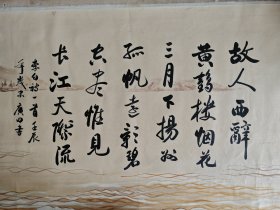 故人西辭
黄鹤楼烟花
三月下揚州
孤帆遠影碧
空盡惟見
長江天際流
李白詩一首壬辰